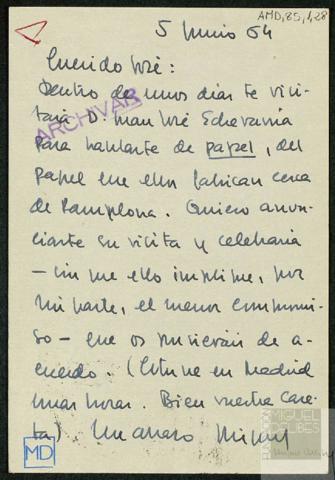 AMD,85,1,28
5 Junio 64
Querido José:
Dentro de unos días te visi-
tará D. Juan José Echevarría
ARCHIVAR
para hablarte de papel, del
papel que ellos fabrican cerca
de Pamplona. Quiero anun-
ciarte su visita y celebraría
—sin que ello implique, por
mi parte, el menor compromi-
so— que os pusierais de a-
cuerdo. (Estuve en Madrid
unas horas. Bien vuestra Care-
ta) Un abrazo Miguel
MD
FUNDACIÓN
MIGUEL
DELIBES